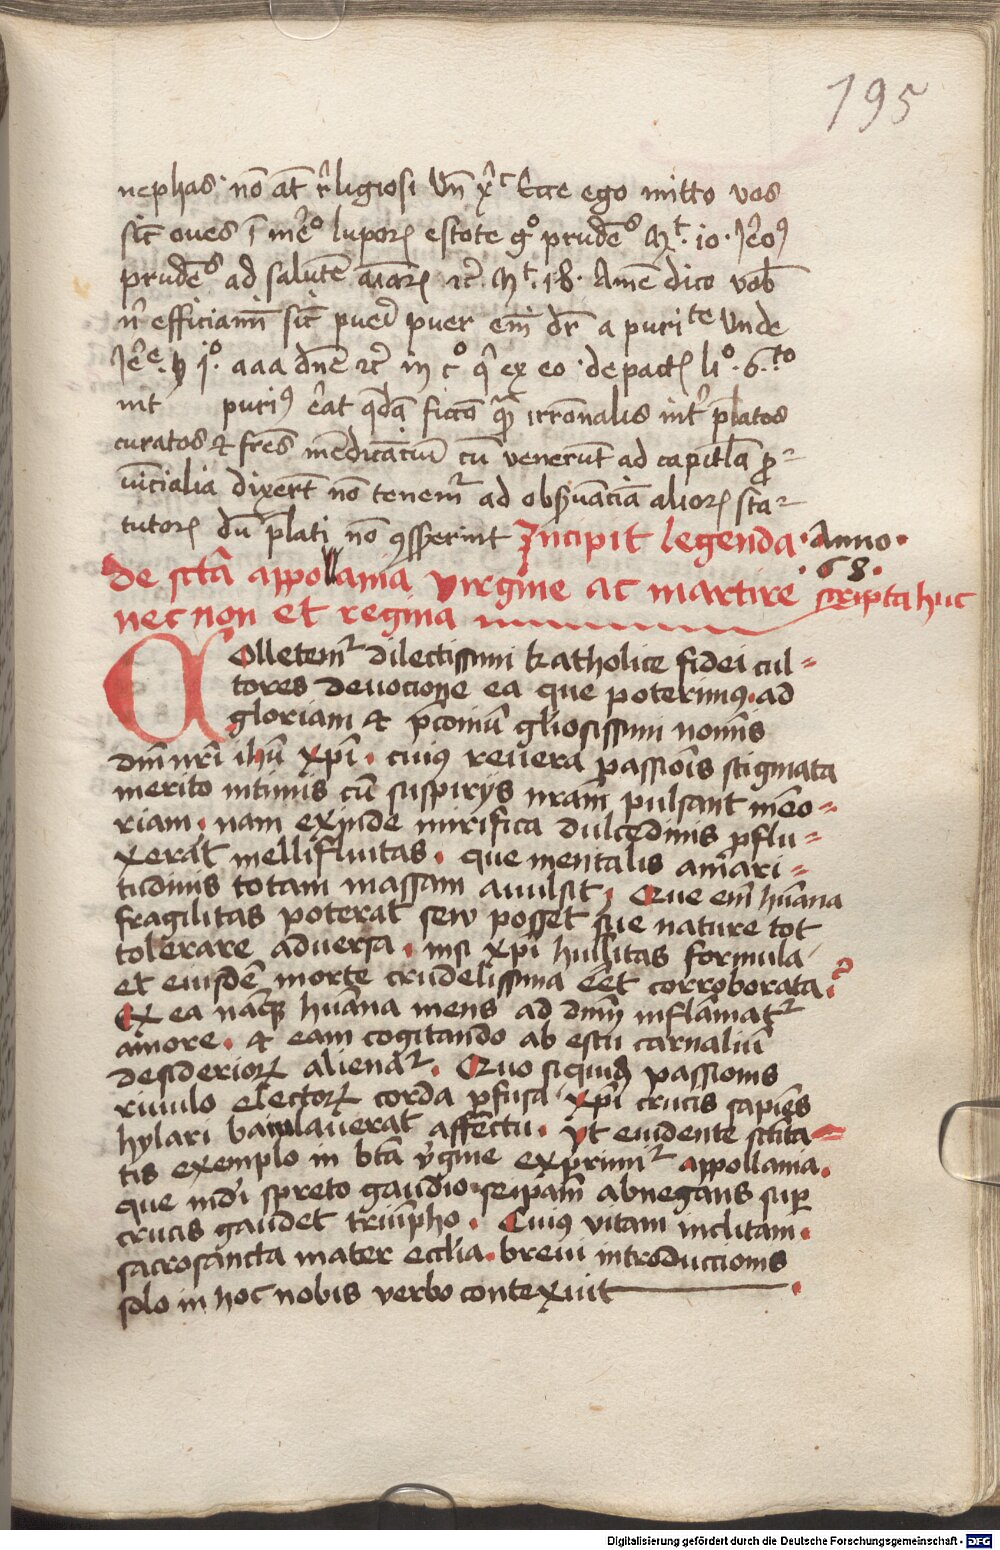 195
nephas · nō at̄ r̄ligiosi Vn̄ x̄c Ecce ego mitto vos
sic̄ oues ī mēo luporꝝ estote gº prudēs Mt. 10. Jēoꝯ
prudēs ad salutē aīarꝝ ꝛc̄. Mt. 18. Amē dico vob̄
n̄ efficiam̄ sic̄ pueī puer em̄ dr̄ a purite Vnde
Jēre. h jº. aaa dn̄e ꝛc̄ in cº q̄ ex eo · de pact liº. 6.to
int puriꝯ ēat qdā ficcō irrōnalis int̄ p̄latos
curatos ⁊ fr̄es mēdicātiū cū venerūt ad capitl̄a ꝓ-
uīcialia dixert̄ nō tenemᷣ ad obẜuāciā aliorꝝ sta-
tutorꝝ dū p̄lati nō ꝯsserint Incipit legenda · Anno ·
· 68 ·
de sctā appollania virgine ac martire scripta huc
nec non et regina
Colletemᷣ dilectissimi katholice fidei cul=
tores deuocione ea que poterimꝯ ad
gloriam ⁊ p̄coniū gl̄iosissimi nom̄is
dn̄i nr̄i ihū xp̄i · cuiꝯ reuera passiōis stigmata
merito intimis cū suspirijs nr̄am pulsant mēo=
riam · nam exinde mirifica dulcedinis ꝓflu=
xerāt mellifluitas · que mentalis amari=
tudinis totam massam auulsit · Que em̄ hūana
fragilitas poterat sew posset sue nature tot
tolerare aduersa · nisi xp̄i huīlitas formula
et eiusdē morte crudelissima eēt corroborata
Ex ea nāqꝫ hūana mens ad dn̄m inflāmatᷣ
amore · ⁊ eam cogitando ab estu carnaliū
desideriorꝝ alienatᷣ. Quo siquid passionis
riuulo electorꝝ corda ꝑfusa xp̄i crucis sapiēs
hylari baiulauerāt affectu · vt euidente sctīta=
tis exemplo in btā v̄gine exprimitᷣ appollania.
que mdī spreto gaudio · seip̄am abnegans suꝑ
crucis gaudet triūpho · Cuiꝯ vitam inclitam ·
sacrosancta mater eccl̄ia · breui introduccionis
solo in hoc nobis verbo contexuit ·
Digitalisierung gefördert durch die Deutsche Forschungsgemeinschaft - DFG